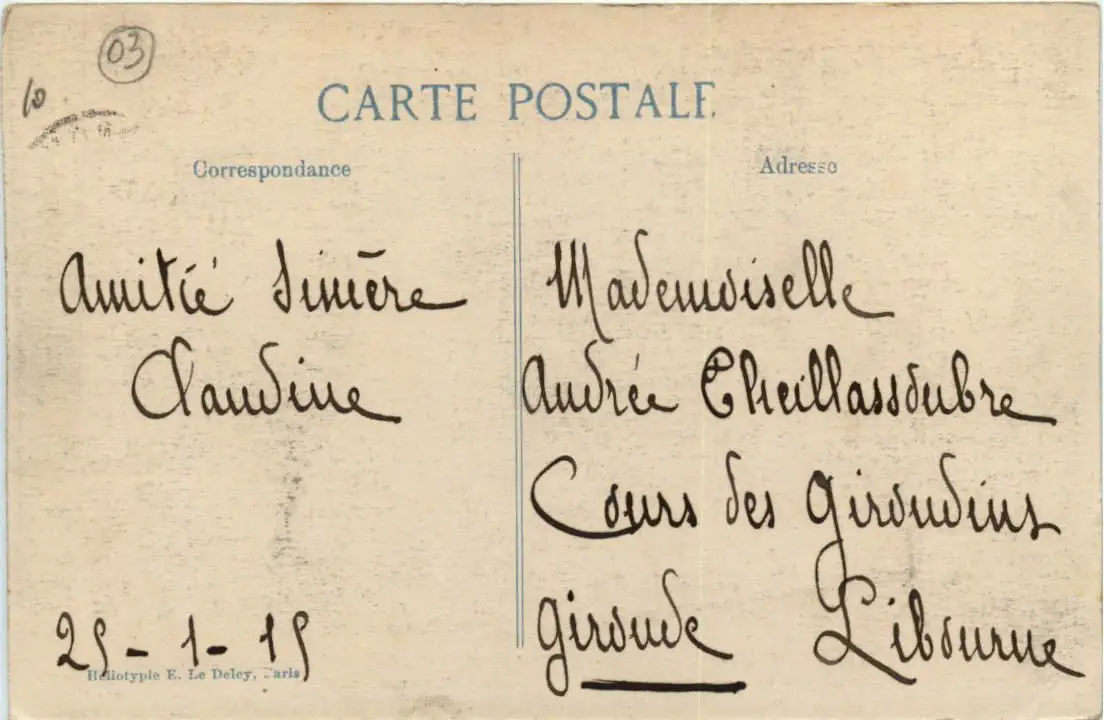 03
10
CARTE POSTALE
Correspondance
Adresse
Amitié Sincère
Claudine
Mademoiselle
Andrée Theillassoubre
Cours des Girondins
Gironde Libourne
25-1-15
Héliotypie E. Le Deley, Paris